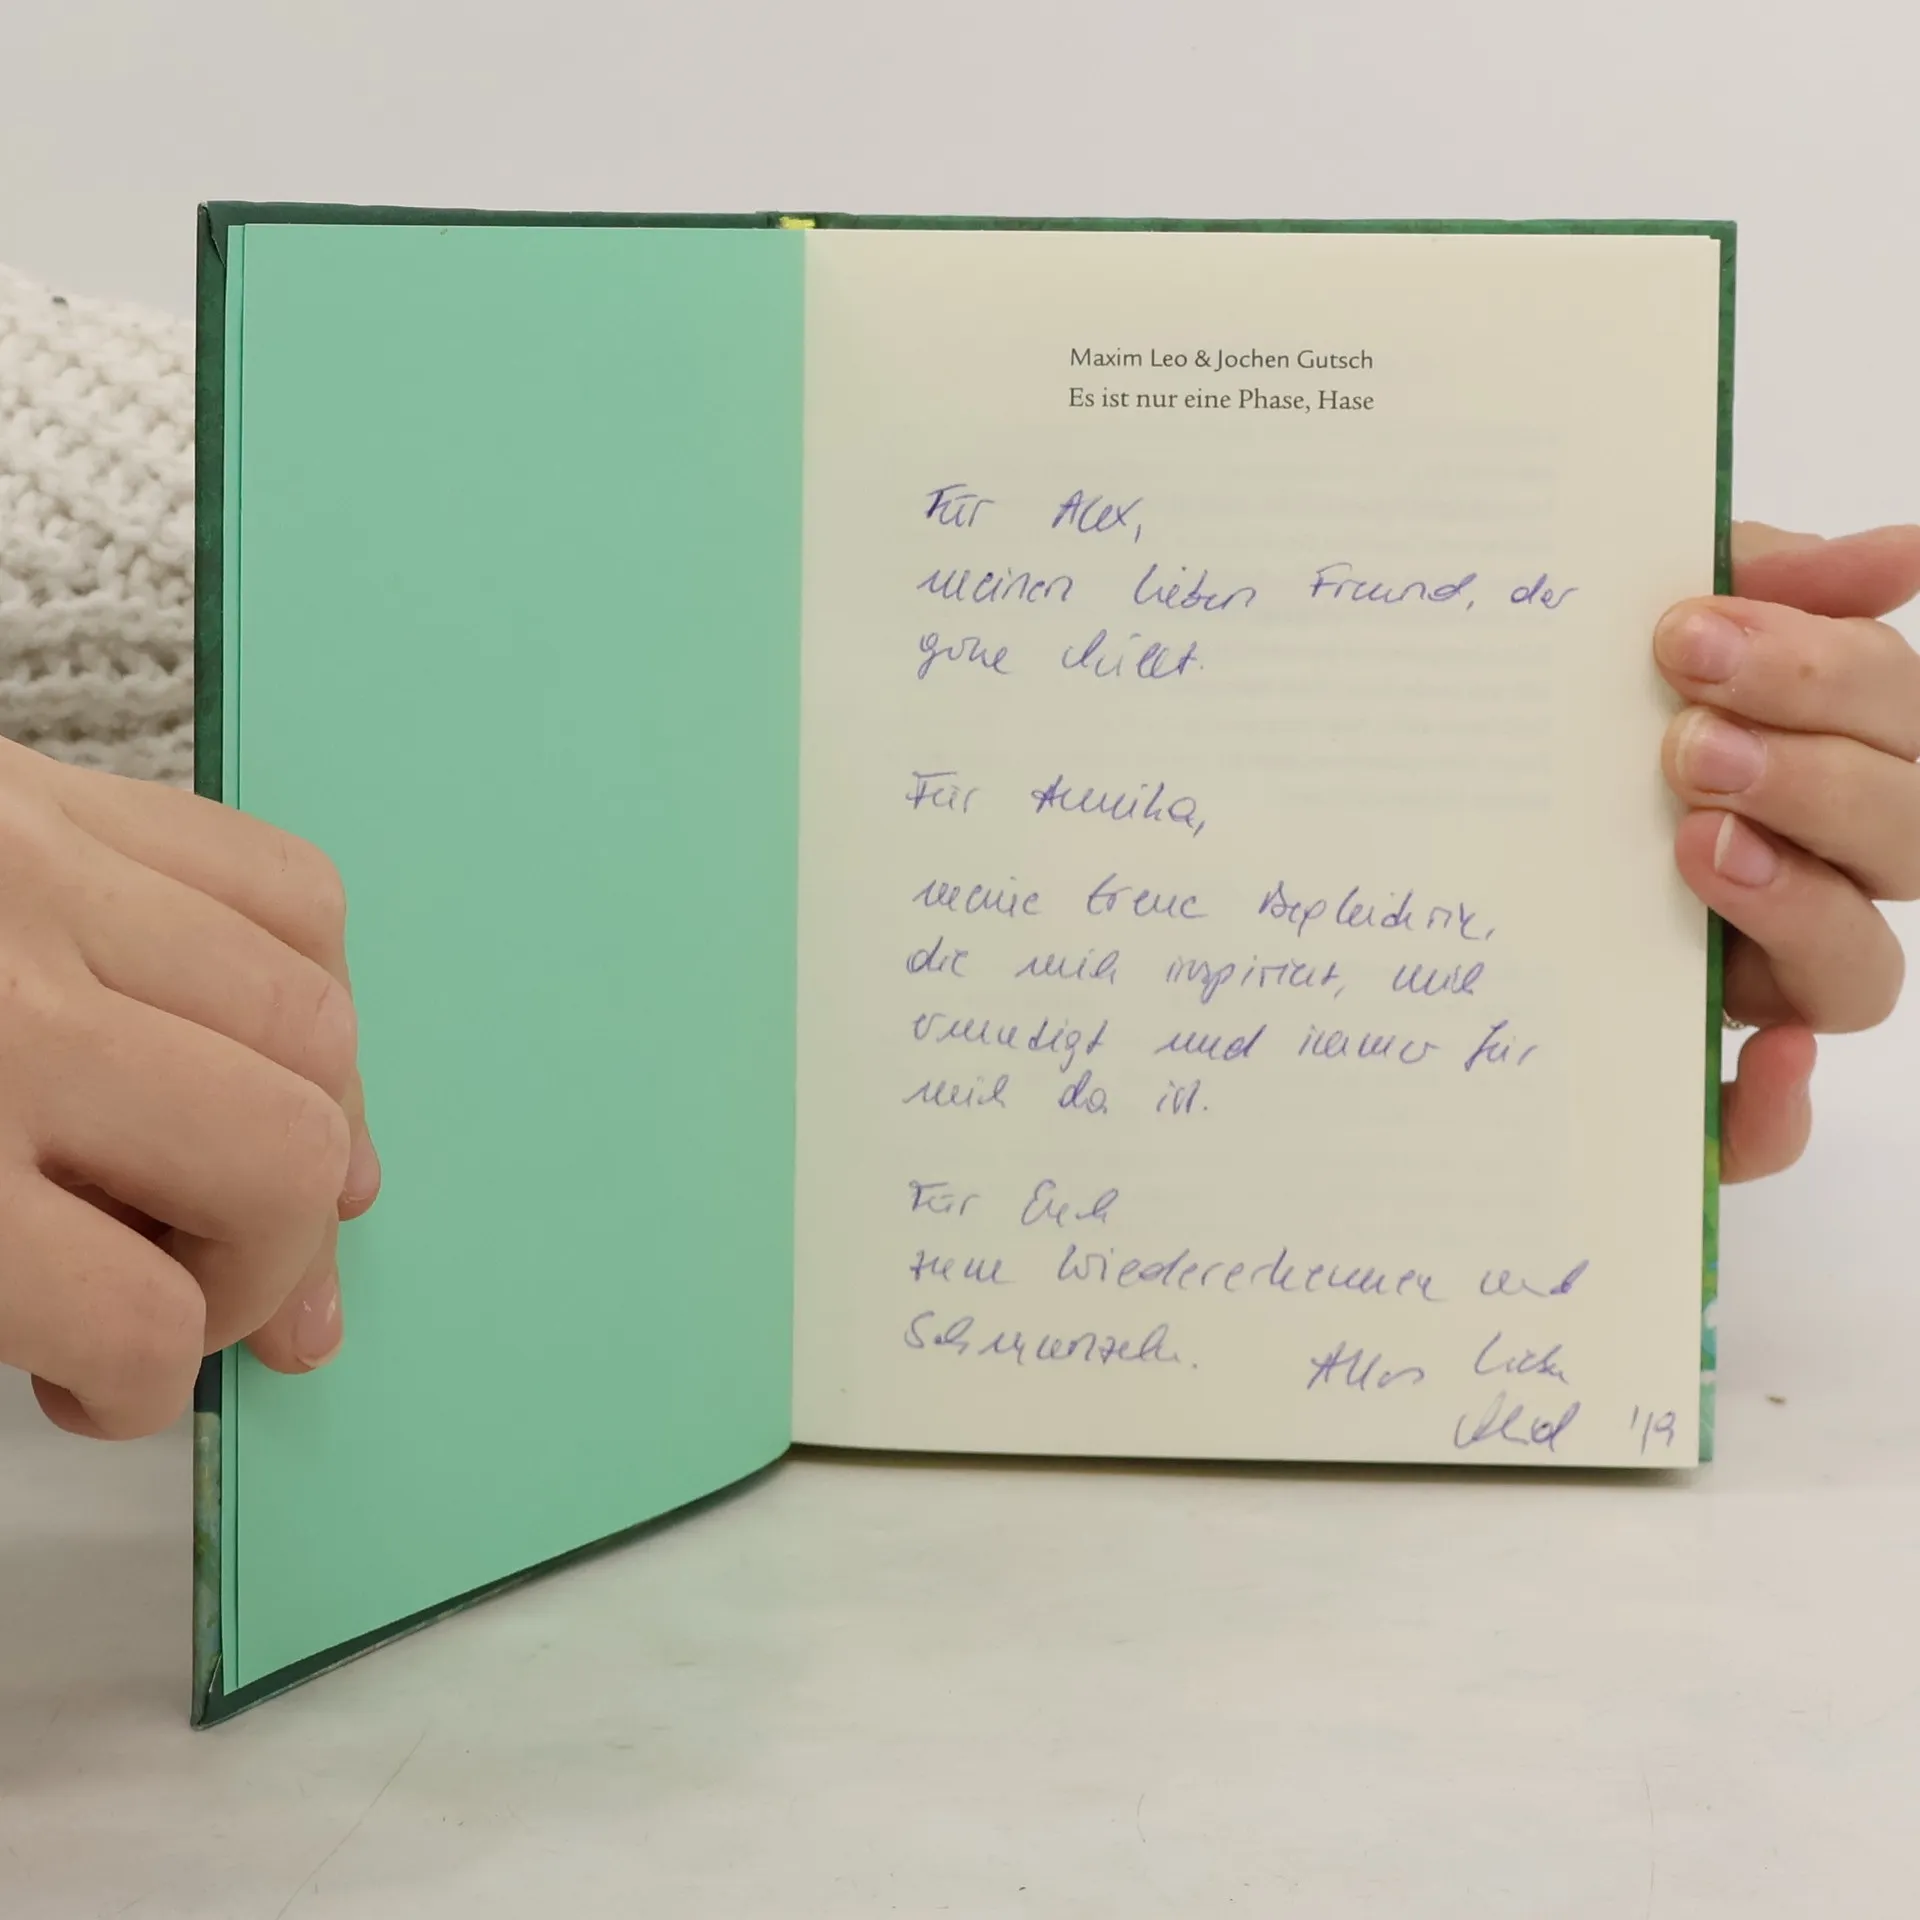 Maxim Leo & Jochen Gutsch
Es ist nur eine Phase, Hase
Für Alex,
meinen lieben Freund, der
gerne chillt.
Für Annika,
meine treue Begleiterin,
die mich inspiriert, mich
ermutigt und immer für
mich da ist.
Für Euch
zum Wiedererkennen und
Schmunzeln.
Alles Liebe
'19